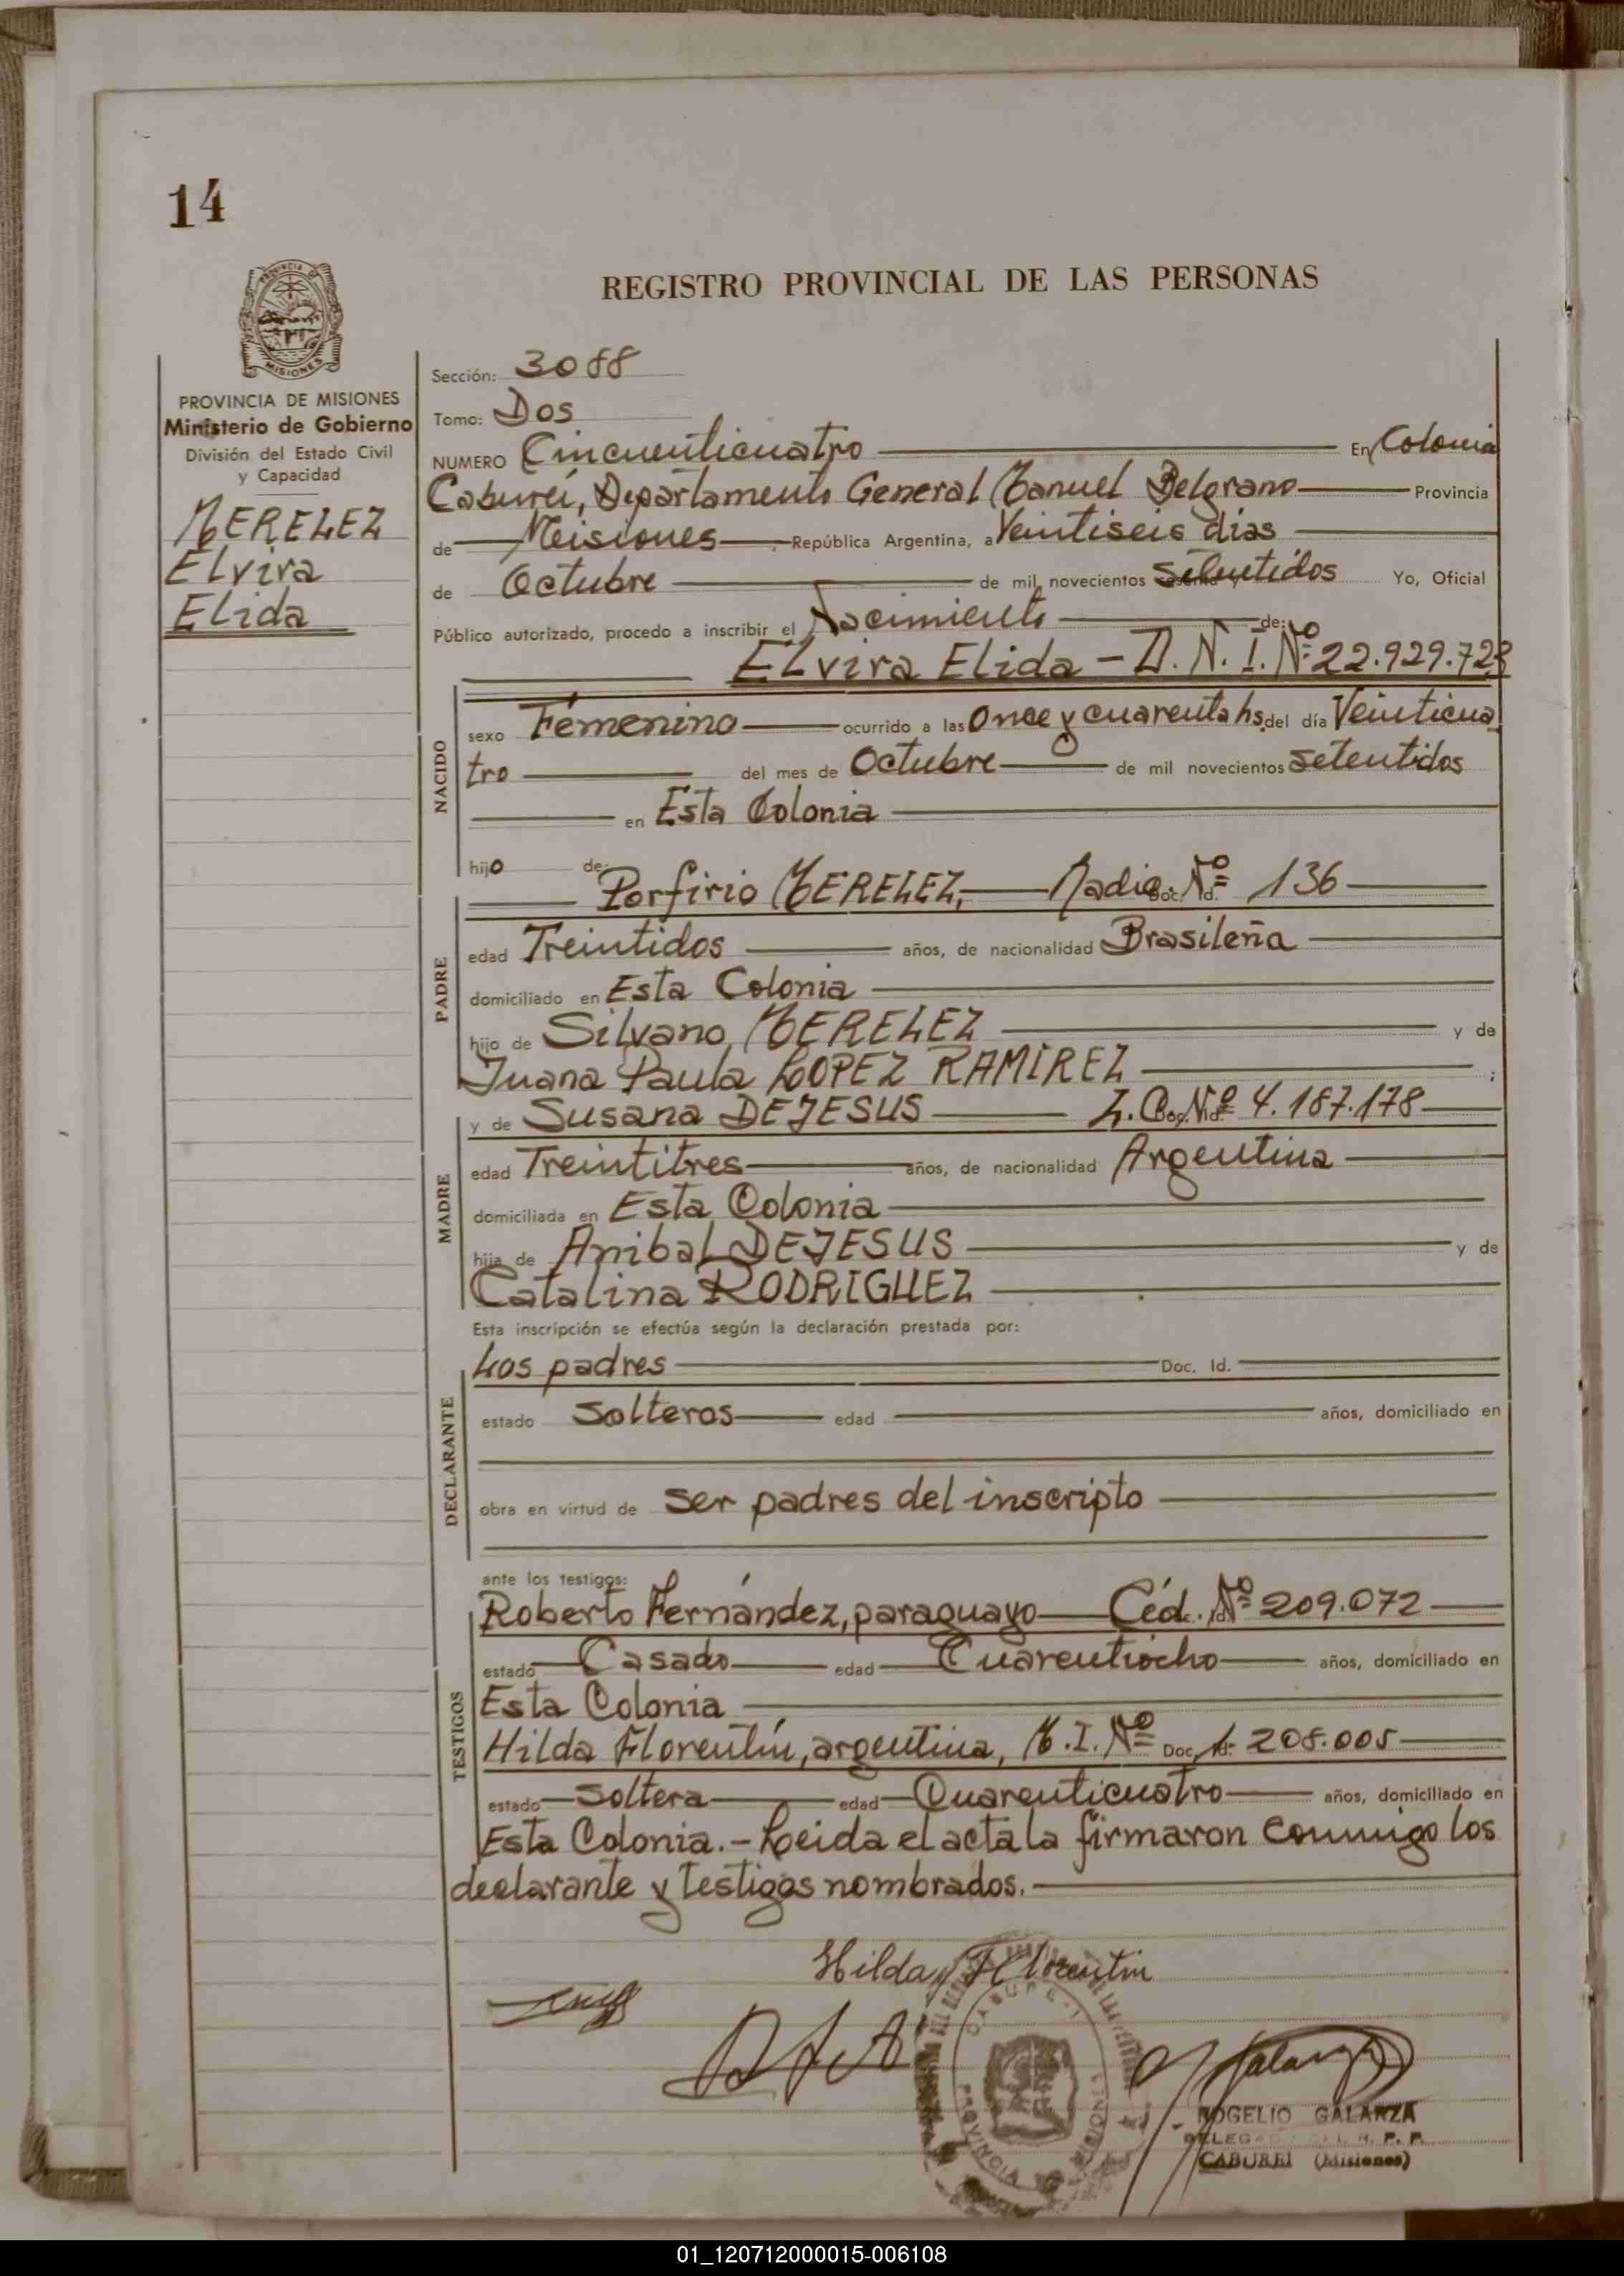 14
REGISTRO PROVINCIAL DE LAS PERSONAS
PROVINCIA DE
MISIONES
PROVINCIA DE MISIONES
Ministerio de Gobierno
División del Estado Civil
y Capacidad
MERELEZ
Elvira
Elida
Sección: 3088
Tomo: Dos
NUMERO Cincuenticuatro En Colonia
Caburei, Departamento General Manuel Belgrano Provincia
de Misiones, República Argentina, a Veintiseis dias
de Octubre de mil novecientos setentidos Yo, Oficial
Público autorizado, procedo a inscribir el Nacimiento de:
Elvira Elida - D. N. I. Nº 22.929.723
NACIDO
sexo Femenino ocurrido a las Once y cuarenta hs. del día Veinticua
tro del mes de Octubre de mil novecientos setentidos
en Esta Colonia
hijo de:
Porfirio MERELEZ, Radic. Doc. Id. Nº 136
PADRE
edad Treintidos años, de nacionalidad Brasileña
domiciliado en Esta Colonia
hijo de Silvano MERELEZ y de
Juana Paula LOPEZ RAMIREZ ;
y de Susana DEJESUS L.C. Doc. Id. Nº 4.187.178
MADRE
edad Treintitres años, de nacionalidad Argentina
domiciliada en Esta Colonia
hija de Anibal DEJESUS y de
Catalina RODRIGUEZ
Esta inscripción se efectúa según la declaración prestada por:
DECLARANTE
Los padres Doc. Id.
estado Solteros edad años, domiciliado en
obra en virtud de ser padres del inscripto
ante los testigos:
TESTIGOS
Roberto Fernández, paraguayo Céd. Nº 209.072
estado Casado edad Cuarentiocho años, domiciliado en
Esta Colonia
Hilda Florentín, argentina, M.I. Nº Doc. Id. 208.005
estado Soltera edad Cuarenticuatro años, domiciliado en
Esta Colonia.- Leida el acta la firmaron conmigo los
declarante y testigos nombrados.
Hilda Florentin
CABURE-I
PROVINCIA
MISIONES
Galarza
ROGELIO GALARZA
R. P. P.
CABUREI (Misiones)
01_120712000015-006108